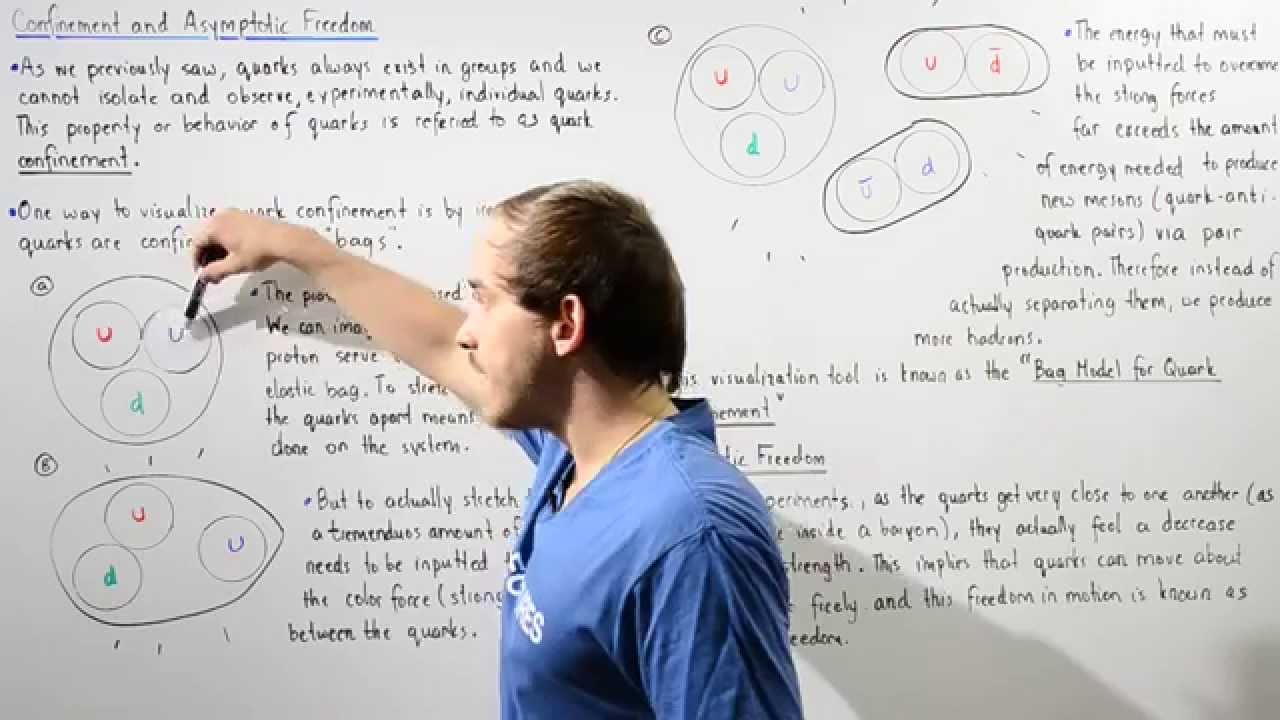 Confinement and Asymptotic Freedom
• As we previously saw, quarks always exist in groups and we
cannot isolate and observe, experimentally, individual quarks.
This property or behavior of quarks is referred to as quark
confinement.
• One way to visualize quark confinement is by
quarks are "bags".
A
U U
d
• The
We can
proton serve
elastic bag. To
the quarks apart means
done on the system.
B
U
U
d
• But to actually stretch
a tremenduos amount of
needs to be inputted
the color force (strong
between the quarks.
C
U U
d
U d̅
U̅ d
• The energy that must
be inputted to overcome
the strong forces
far exceeds the amount
of energy needed to produce
new mesons (quark-anti-
quark pairs) via pair
production. Therefore instead of
actually separating them, we produce
more hadrons.
visualization tool is known as the "Bag Model for Quark
Freedom
, as the quarks get very close to one another (as
inside a baryon), they actually feel a decrease
strength. This implies that quarks can move about
freely and this freedom in motion is known as